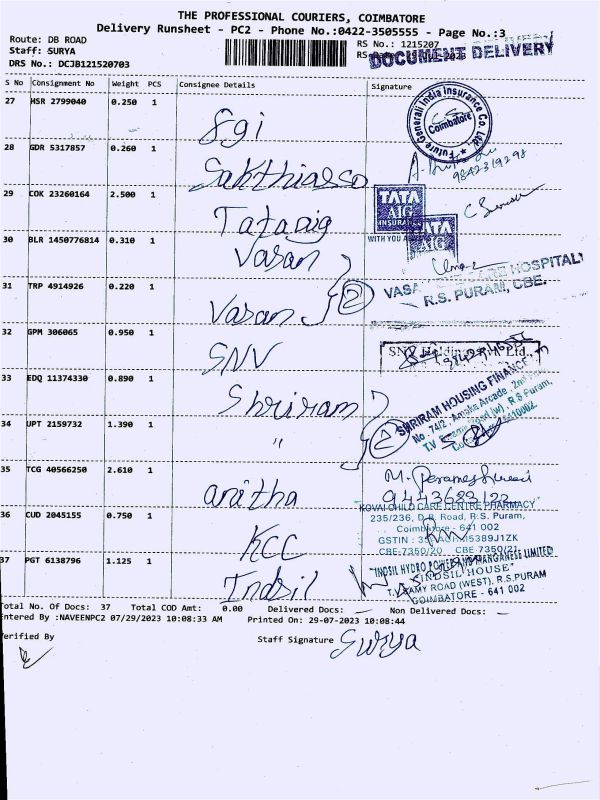 THE PROFESSIONAL COURIERS, COIMBATORE
Delivery Runsheet - PC2 - Phone No.:0422-3505555 - Page No.:3
Route: DB ROAD
Staff: SURYA
DRS No.: DCJB121520703
RS No.: 1215207
DOCUMENT DELIVERY
S No Consignment No Weight PCS Consignee Details Signature
27 HSR 2799040 0.250 1 Fgi
Future Generali India Insurance Co. Ltd. Coimbatore
28 GDR 5317857 0.260 1 Sakthiasso
9842319298
29 COK 23260164 2.500 1 Tataaig
TATA AIG INSURANCE
WITH YOU
TATA AIG
30 BLR 1450776814 0.310 1 Vasan
31 TRP 4914926 0.220 1 Vasan
2
HOSPITAL
R.S. PURAM, CBE.
32 GPM 306065 0.950 1 SNV
33 EDQ 11374330 0.890 1 Shriram
34 UPT 2159732 1.390 1 "
2
SHRIRAM HOUSING FINANCE
No. 74/2, Amaka Arcade, 2nd
R.S Puram,
35 TCG 40566250 2.610 1 anitha
M. Parameshwari
9443623122
36 CUD 2045155 0.750 1 KCC
KOVAI CHILD CARE CENTRE PHARMACY
235/236, D.B. Road, R.S. Puram,
Coimbatore - 641 002
CBE-7350/20 CBE 7350/21
37 PGT 6138796 1.125 1 Indsil
INDSIL HYDRO POWER AND MANGANESE LIMITED
"INDSIL HOUSE"
T.V.SAMY ROAD (WEST), R.S.PURAM
COIMBATORE - 641 002
Total No. Of Docs: 37 Total COD Amt: 0.00 Delivered Docs: Non Delivered Docs:
Entered By :NAVEENPC2 07/29/2023 10:08:33 AM Printed On: 29-07-2023 10:08:44
Verified By Staff Signature Surya